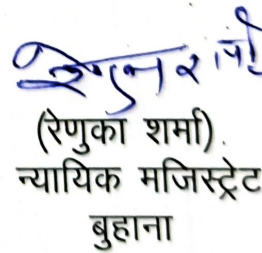 (रेणुका शर्मा)
न्यायिक मजिस्ट्रेट
बुहाना